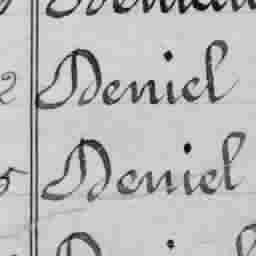 2 Deniel
5 Deniel